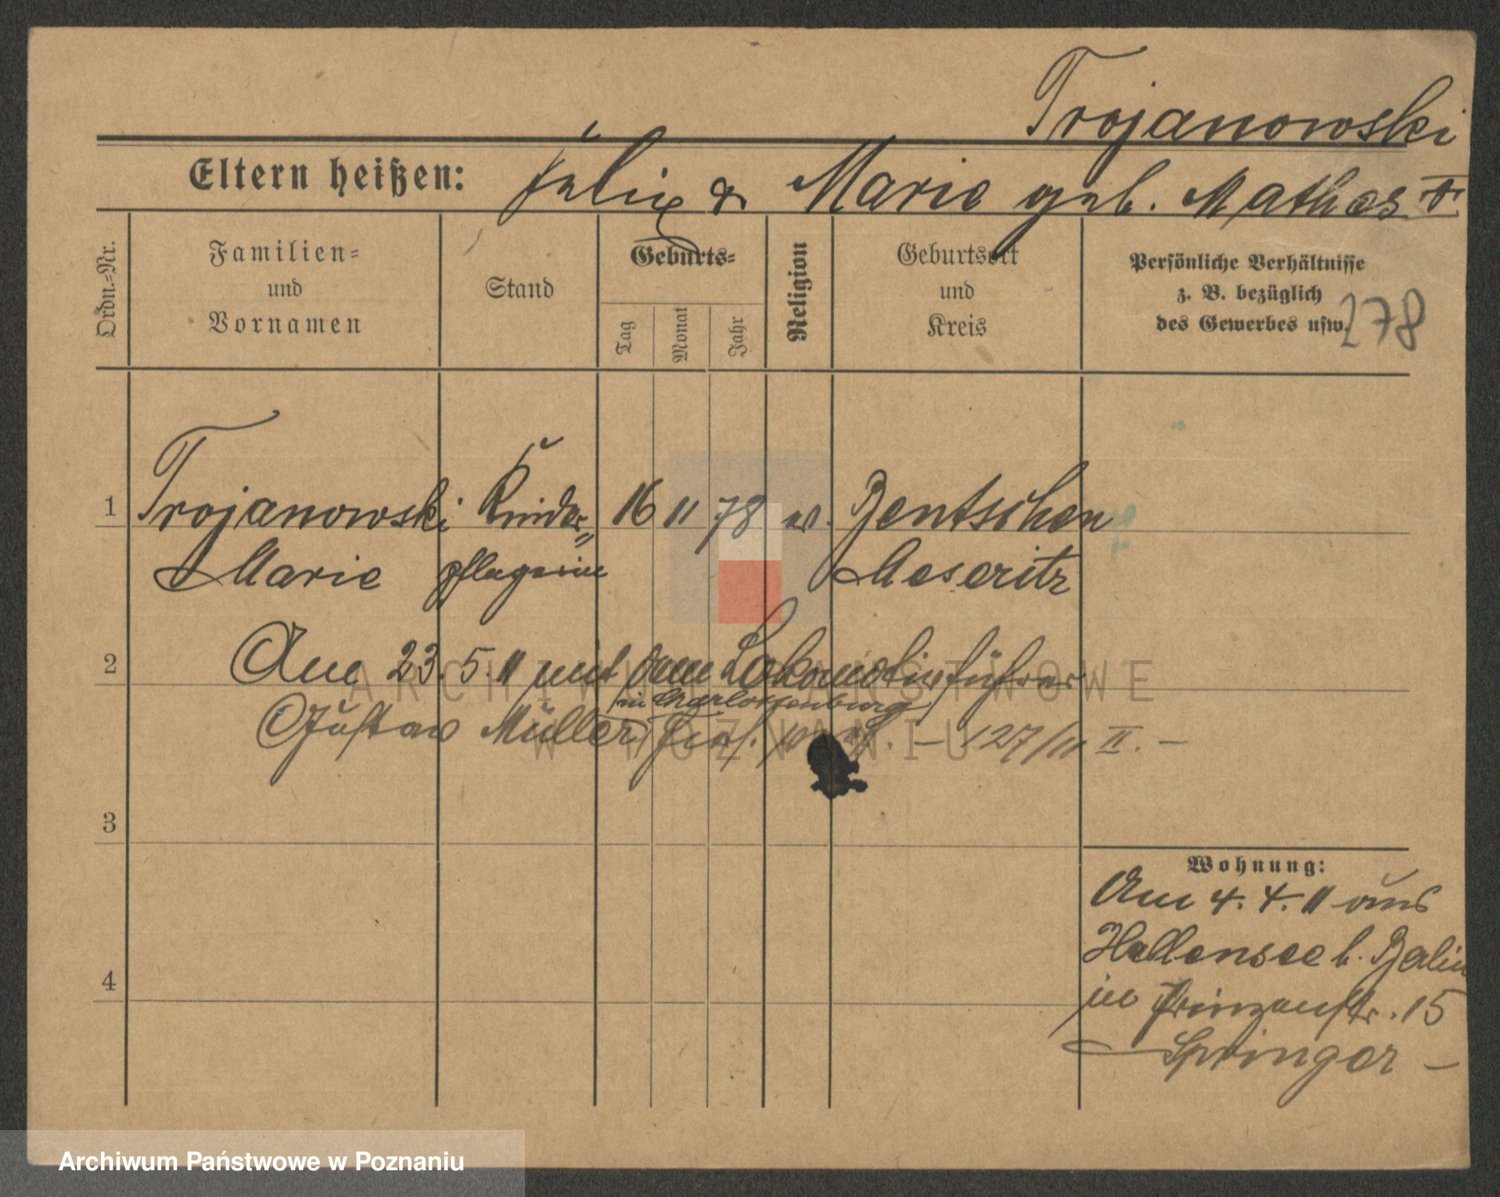 Trojanowski
Eltern heißen: Felix & Marie geb. Mathes
Ordn.-Nr.
Familien-
und
Vornamen
Stand
Geburts-
Tag
Monat
Jahr
Religion
Geburtsort
und
Kreis
Persönliche Verhältnisse
z. B. bezüglich
des Gewerbes usw.
278
1 Trojanowski Kinder- 16 11 78 ev. Bentschen
Marie pflegerin Meseritz
2 Am 23. 5. 11 mit dem Lokomotivführer
in Charlottenburg
Gustav Müller verh. – 127/11 II. –
3
Wohnung:
Am 4. 4. 11 aus
Hallensee b. Berlin
in Prinzenstr. 15
4
Springer –
ARCHIWUM PAŃSTWOWE
W POZNANIU
Archiwum Państwowe w Poznaniu